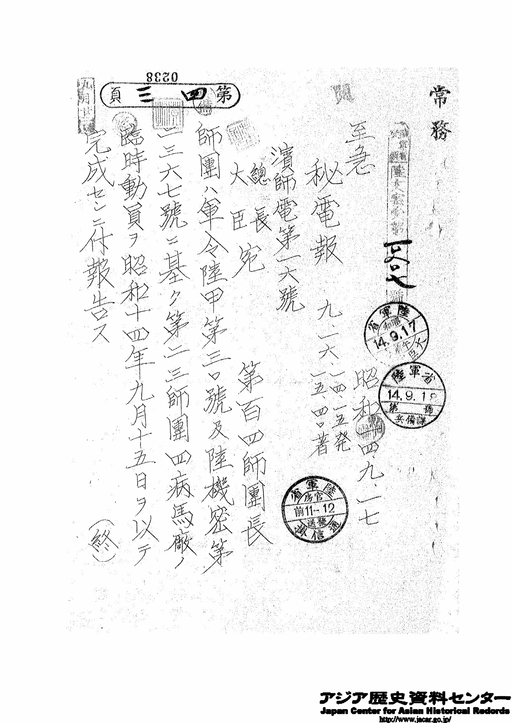 0238
第四三頁
常務
陸軍省
14.9.17
陸軍省
14.9.18
兵備課
昭和一四、九、一七
至急
秘電報
九、一六
一四、一五発
一五、四〇著
陸軍省
官房
前11-12
通信
濱師電第一六號
總長
大臣
宛
第百四師團長
師團ハ軍令陸甲第三〇號及陸機密第
一三六七號ニ基ク第二三師團四病馬廠ノ
臨時動員ヲ昭和十四年九月十五日ヲ以テ
完成セシニ付報告ス
(終)
アジア歴史資料センター
Japan Center for Asian Historical Records
http://www.jacar.go.jp/